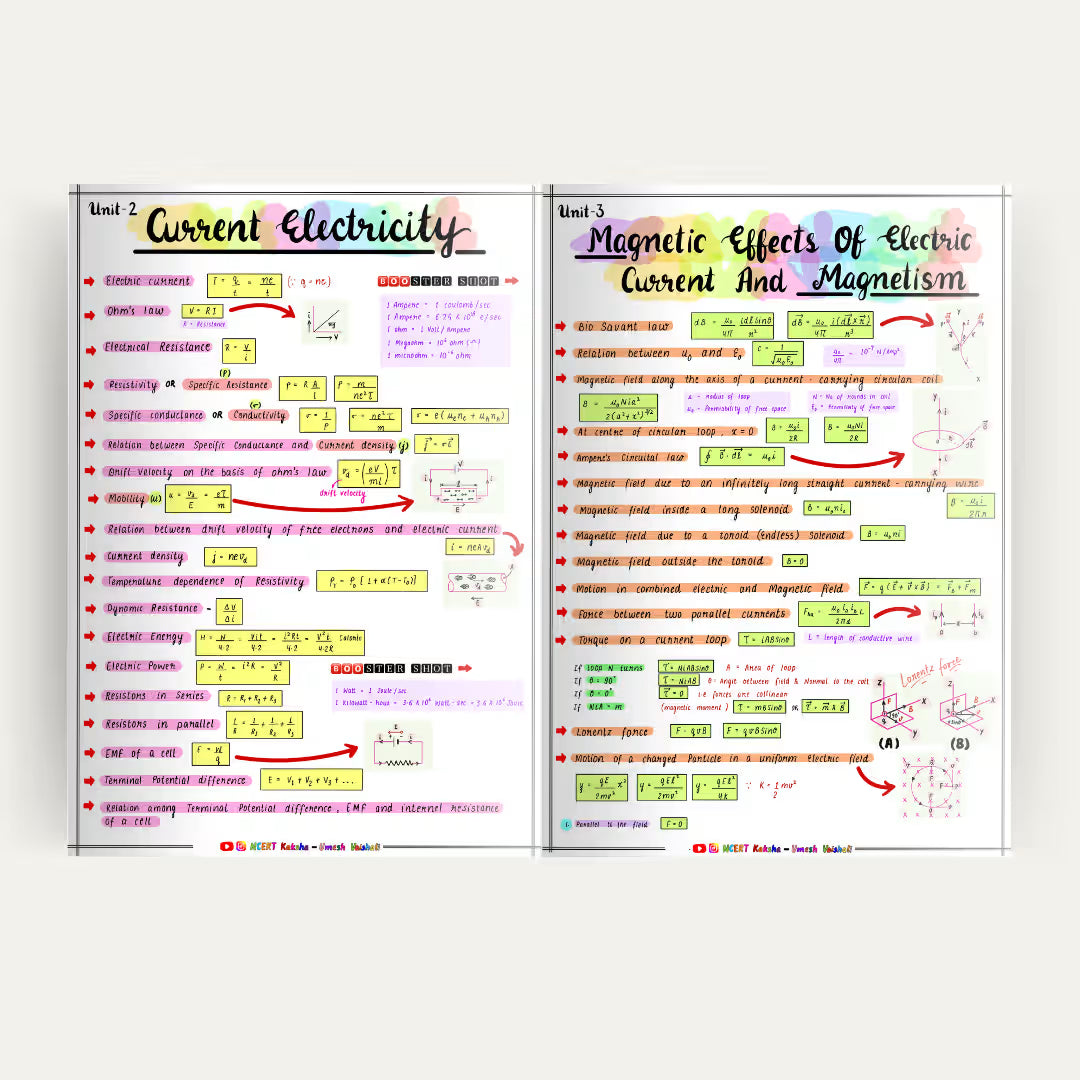 Unit-2
Current Electricity
Electric current I = q/t = ne/t (∵ q = ne)
BOOSTER SHOT
Ohm's law V = RI
R = Resistance
1 Ampere = 1 coulomb/sec
1 ohm = 1 Volt/Ampere
1 Megaohm = 10⁶ ohm (Ω)
1 microohm = 10⁻⁶ ohm
Electrical Resistance R = V/i
(ρ)
Resistivity OR Specific Resistance ρ = R A/l ρ = m/ne²τ
(σ)
Specific conductance OR Conductivity σ = 1/ρ σ = ne²τ/m σ = e(μene + μhnh)
Relation between Specific Conductance and Current density (j) j = σE
Drift Velocity on the basis of ohm's law vd = (eV/ml) τ
drift velocity
Mobility (u) u = vd/E = eτ/m
Relation between drift velocity of free electrons and electric current
i = neAvd
Current density j = nevd
Temperature dependence of Resistivity ρt = ρ0 [1+α(T-T0)]
Dynamic Resistance = Δv/Δi
Electric Energy H = W/4.2 = Vit/4.2 = i²Rt/4.2 = V²t/4.2R Calorie
Electric Power P = W/t = i²R = V²/R
BOOSTER SHOT
1 Watt = 1 Joule/sec
1 kilowatt-hour = 3.6 X 10⁶ Watt-sec = 3.6 X 10⁶ Joule
Resistors in Series R = R1+R2+R3
Resistors in parallel 1/R = 1/R1 + 1/R2 + 1/R3
EMF of a cell E = W/q
Terminal Potential difference E = V1 + V2 + V3 + ...
Relation among Terminal Potential difference, EMF and internel resistance
of a cell
NCERT Kaksha - Umesh Vaishali
Unit-3
Magnetic Effects Of Electric
Current And Magnetism
Bio Savart law dB = μ0/4π idlsinθ/r² dB = μ0/4π i(dl×r)/r³
Relation between μ0 and ε0 C = 1/√μ0ε0 μ0/4π = 10⁻⁷ N/Amp²
Magnetic field along the axis of a current-carrying circular coil
B = μ0Nia²/2(a²+x²)^3/2
a = radius of loop N = No of rounds in coil
μ0 = Permeability of free space ε0 = Permittivity of free space
At centre of circular loop, x = 0 B = μ0i/2R B = μ0Ni/2R
Ampere's Circuital law ∮ B·dl = μ0i
Magnetic field due to an infinitely long straight current-carrying wire
B = μ0i/2πr
Magnetic field inside a long solenoid
Magnetic field due to a toroid (Endless) Solenoid B = μ0ni
Magnetic field outside the toroid B = 0
Motion in combined electric and Magnetic field F = q(E + v×B) = Fe + Fm
Force between two parallel currents
Torque on a current loop τ = iABsinθ L = length of conductive wire
If loop N turns τ = NiABsinθ A = Area of loop
If θ = 90° τ = NiAB θ = Angle between field & Normal to the coil
If θ = 0° τ = 0 i.e forces are collinear
If NiA = m (magnetic moment) τ = mBsinθ or τ = m × B
Lorentz force
(A) (B)
Lorentz force F = qvB F = qvBsinθ
Motion of a charged Particle in a uniform electric field
y = qE/2mv² x² y = qEl²/2mv² y = qEl²/4K ∵ K = 1/2 mv²
i. Parallel to the field F = 0
NCERT Kaksha - Umesh Vaishali